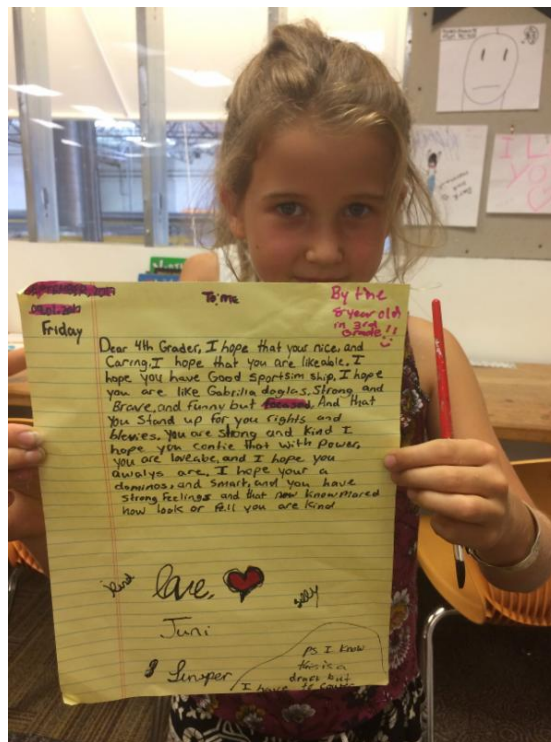 To: me
By the
8 year old
in 3rd
Grade!!
Friday
Dear 4th Grader, I hope that your nice, and
Caring. I hope that you are likeable. I
hope you have Good sportsim ship. I hope
you are like Gabrilia doglas, Strong and
Brave, and funny but focused. And that
You Stand up for you rights and
You are strong and kind I
hope you that with power,
you are loveabe, and I hope you
awalys are. I hope your a
dominos, and smart, and you have
strong feelings and that now
how look or fell you are kind
kind
love,
silly
Juni
Juniper
PS. I know
this is a
but
I have to
I L
YO